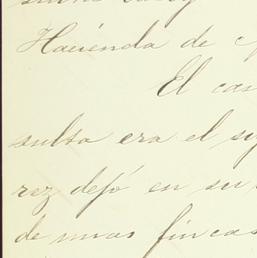 Hacienda de
El cas
sulta era el si
rez dejó en su
de unas fincas